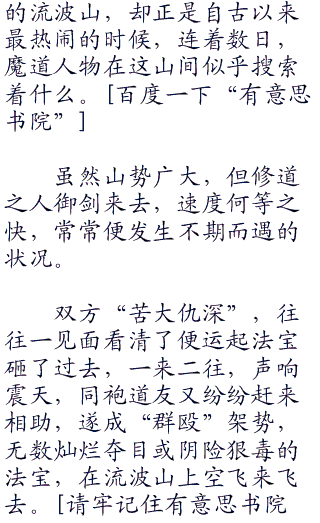 的流波山，却正是自古以来
最热闹的时候，连着数日，
魔道人物在这山间似乎搜索
着什么。[百度一下“有意思
书院”]
虽然山势广大，但修道
之人御剑来去，速度何等之
快，常常便发生不期而遇的
状况。
双方“苦大仇深”，往
往一见面看清了便运起法宝
砸了过去，一来二往，声响
震天，同袍道友又纷纷赶来
相助，遂成“群殴”架势，
无数灿烂夺目或阴险狠毒的
法宝，在流波山上空飞来飞
去。[请牢记住有意思书院